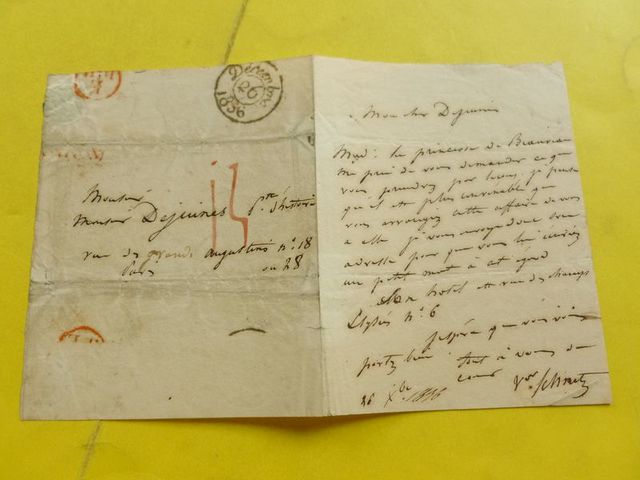 Décembre
26
1836
Monsieur
Monsieur Dejuines ptre d'histoire
rue des grands augustins n° 18
ou 28
Paris
Mon cher Dejuines
Mad: la princesse de Beauveau
me prie de vous demander ce que
vous prendrez par leçon, je pense
qu'il est plus convenable que
vous arrangiez cette affaire de vous
a elle je vous envoye donc son
adresse pour que vous lui écriviez
un petit mot à cet égard
Son hotel est rue des champs
Elysées n° 6
J'espère que vous vous
portez bien tout à vous de
coeur
26 Xbre 1836 Vor Schnetz